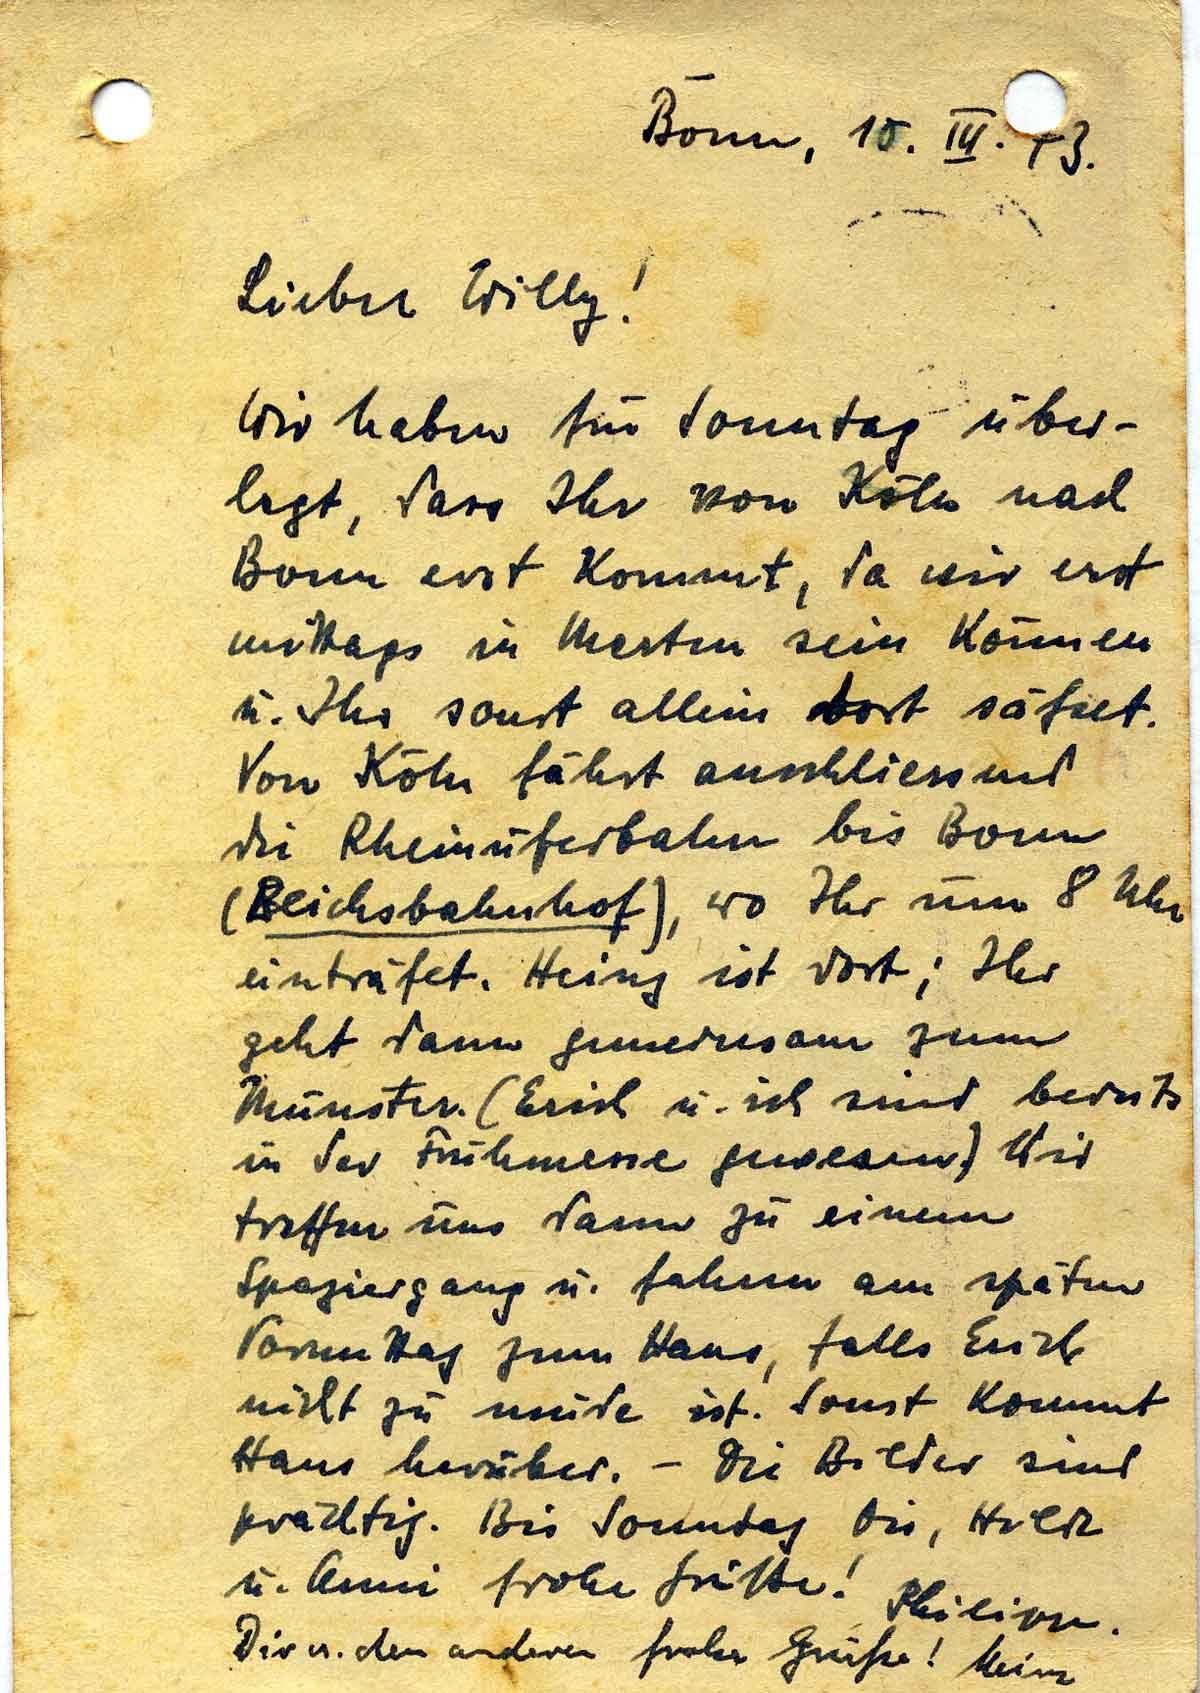 Bonn, 10. III. 43.
Lieber Willy!
Wir haben für Sonntag über-
legt, dass Ihr von Köln nach
Bonn erst kommt, da wir erst
mittags in Merten sein können
u. Ihr sonst allein dort säßet.
Von Köln fährt anschliessend
die Rheinuferbahn bis Bonn
(Reichsbahnhof), wo Ihr um 8 Uhr
einträfet. Heinz ist dort; Ihr
geht dann gemeinsam zum
Münster. (Erich u. ich sind bereits
in der Frühmesse gewesen.) Wir
treffen uns dann zu einem
Spaziergang u. fahren am späten
Vormittag zum Hans, falls Erich
nicht zu müde ist. Sonst kommt
Hans herüber. – Die Bilder sind
prächtig. Bis Sonntag Dir, Hilde
u. Anni frohe Grüße!
Philipp.
Dir u. den anderen frohe Grüße! Heinz